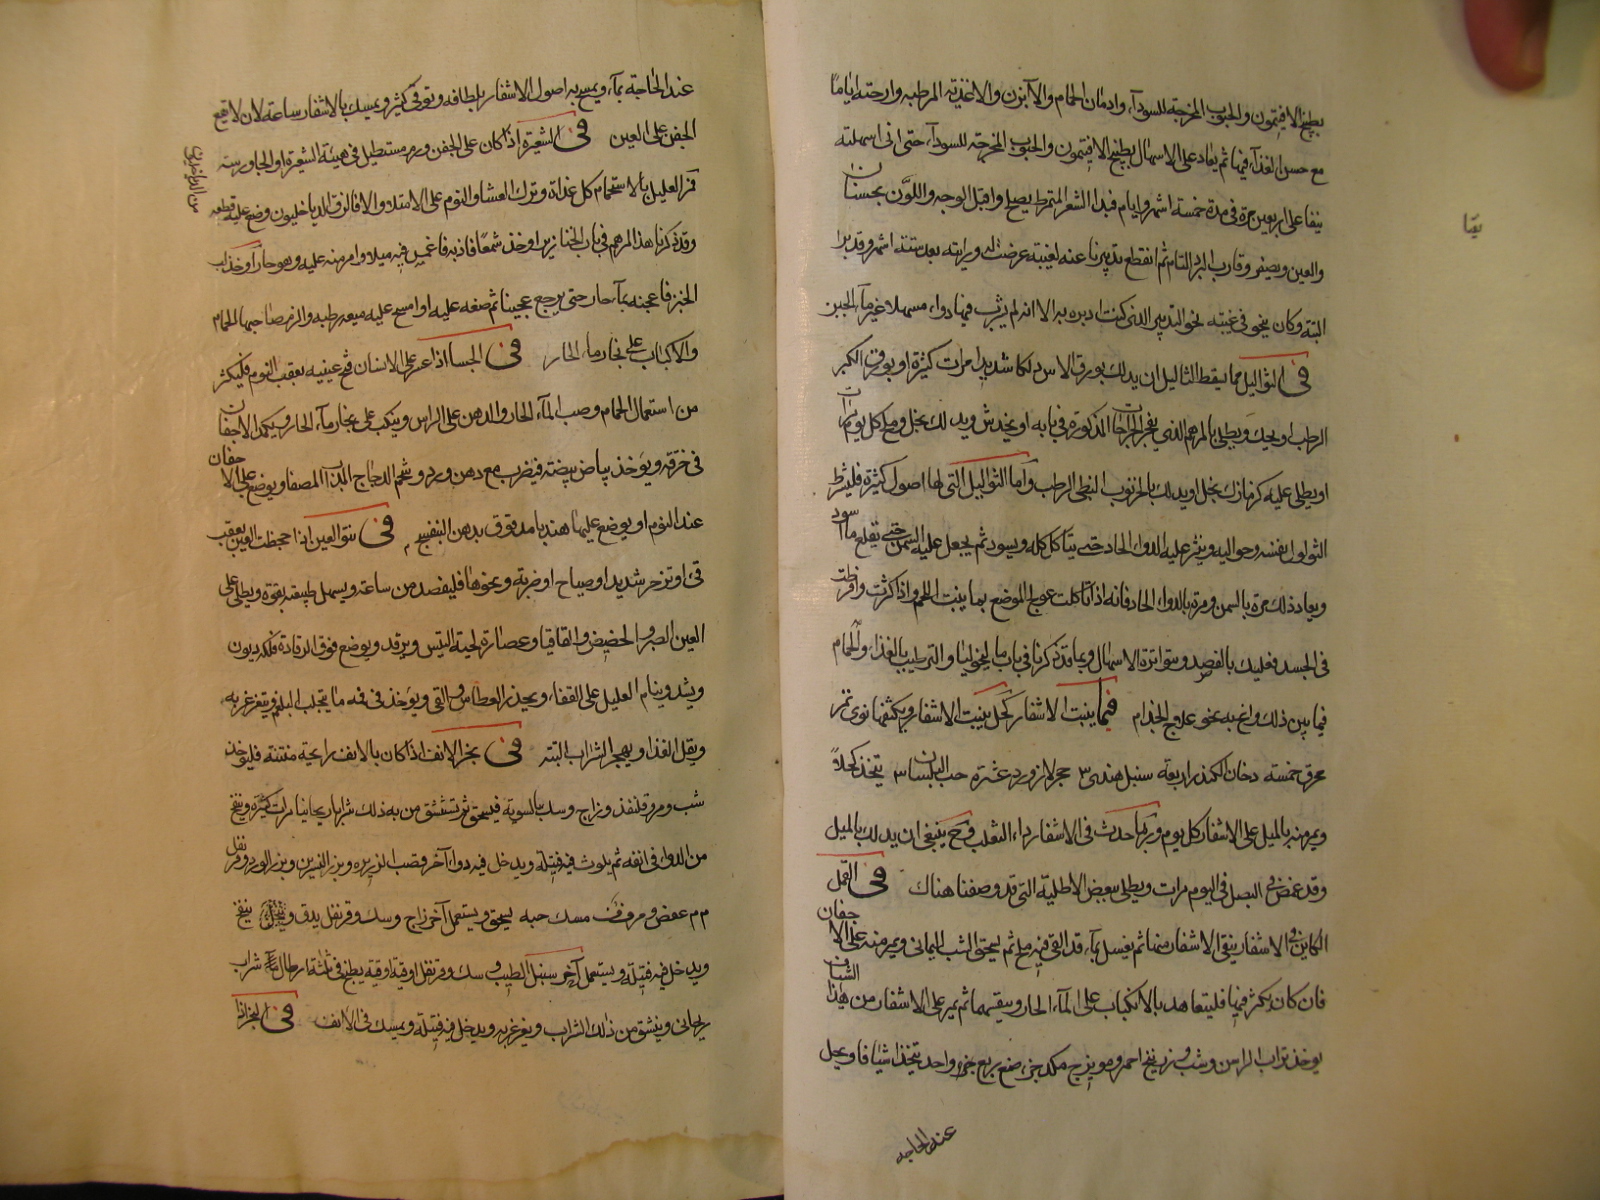 بطبخ الافتيمون والحبوب المخرجة للسوداء وادمان الحمام والآبزن والاغذية المرطبه وارحته اياما
مع حسن الغذاء فيها ثم يعاد على الاسهال بطبخ الافتيمون والحبوب المخرجة للسوداء حتى انى اسهلته
نيفا على اربعين مرة فى مدة خمسته اشهر وايام فبدا الشعر المتمرط يصلح واقبل الوجه واللون يحسنان
والعين ويصفو وقارب البرء التام ثم انقطع تدبيرنا عنه لغيبته عرضت له ورايته بعد ستة اشهر وقد برا
البتة وكان نحو فى غيبته نحو التدبير الذى كنت ادبره به الا انه لم يشرب فيها دواء مسهلا غير ماء الجبن
فى الثواليل مما يسقط الثاليل ان يدلك بورق الاس دلكا شديدا مرات كثيرة او بورق الكبر
الرطب او يحك ويطلى بالمرهم الذى يفجر الجراحات المذكورة فى بابه او يخدش ويدلك بخل وملح كل يوم مرات
او يطلى عليه كرنب بخل او يدلك بالخرنوب النبطى الرطب واما الثواليل التى لها اصول كثيرة فليشرط
الثولول نفسه وحواليه وينثر عليه الدواء الحاد حتى يتاكل كله ويسود ثم يجعل عليه السمن حتى يقلع ما اسود
ويعاد ذلك مرة بالسمن ومرة بالدواء الحاد فانه اذا تاكلت عولج الموضع بما ينبت اللحم واذا كثرت وافرطت
فى الجسد فعليك بالفصد وبتواترة الاسهال وبما قد ذكرنا فى باب ماليخوليا والترطيب بالغذاء والحمام
فيما بين ذلك وانح به نحو علاج الجذام فيما ينبت الاشفار كحل ينبت الاشفار ويكثفها نوى تمر
محرق خمسته دخان الكندر اربعة سنبل هندى ٣ حجر لازورد عشرة حب البلسان ٣ يتخذ كحلا
ويمر منه بالميل على الاشفار كل يوم وربما حدث فى الاشفار داء الثعلب فح ينبغى ان يدلك بالميل
وقد غمض فى البصل فى اليوم مرات ويطلى ببعض الاطلية التى قد وصفنا هناك فى القمل
الكاين فى الاشفار ينقى الاشفار منها ثم يغسل بماء قد القى فيه ملح ثم يسحق الشب اليمانى ويمر منه على الاجفان
فان كان يكثر فيها فليتعاهد بالانكباب على الماء الحار وينقيهما ثم يمر على الاشفار من هذا الشياف
يوخذ تراب الراسن وشب وزرنيخ احمر وميويزج مكد جزء صنع بربع جزء واحد يتخذ اشيافا ويحل
عند الحاجه
نيفا
عند الحاجة بماء ويمسح به اصول الاشفار بلطافه وتوقى كثير ويمسك بالاشفار ساعة لان لا يقع
الجفن على العين فى الشعيرة اذا كان على الجفن ورم مستطيل فى هيئة الشعيرة او الجاورسة
فمر العليل بالاستحمام كل غداة وترك العشا والنوم على الامتلاء والا فالزق الدياخليون وضع عليه قطعه
وقد ذكرنا هذا المرهم فى باب الخنازير او خذ شمعا فاذبه فاغمس فيه ميلا وامر منه عليه وهو حار او خذ لب
الخبز فاعجنه بماء حار حتى يرجع عجينا ثم ضعه عليه او امسح عليه ميعه رطبه والزم صاحبها الحمام
والاكباب على بخار ماء الحار فى الجسا اذا عسر على الانسان فتح عينيه بعقب النوم فليكثر
من استعمال الحمام وصب الماء الحار والدهن على الراس وينكب على بخار ماء الحار ويكمد الاجفان
فى خرقة ويوخذ بياض بيضته فيضرب مع دهن ورد وشحم الدجاج المذاب المصفا ويوضع على الاجفان
عند النوم او يوضع عليها هندبا مدقوق بدهن البنفسج فى نتو العين اذا جحظت العين بعقب
قئ او تزحر شديد او صياح او ضربة ونحوها فليفصد من ساعته ويسهل طبيعته بقوة ويطلى على
العين الصبر والحضيض والقاقيا وعصارة لحية التيس ويرفد ويوضع فوق الرفادة فلكه ديون
ويشد وينام العليل على القفاء ويحذر العطاس والقى ويوخذ فى فمه ما يجلب البلغم ويتغرغر به
ويقل الغذا ويهجر الشراب البته فى بخر الانف اذا كان بالانف رايحة منتنة فليوخذ
شب ومر وقلنفذ وزاج وسك بالسويه فيسحق ثم تستنشق من به ذلك شرابا ريحانيا مرات كثيرة وينفخ
من الدواء فى انفه ثم يلوث فيه فتيلة ويدخل فيه دواء آخر وقصب الذريره وبزر النسرين وبزر الورد وقرنفل
م م عفص ومر مسك حبه يسحق ويستعمل آخر زاج وسك وقرنفل يدق وينخل ينفخ
ويدخل فيه فتيلة ويستعمل آخر سنبل الطيب وسك وقرنفل اوقية اوقية يطبخ فى ثلثة ارطال شراب
ريحانى ويتنشق من ذلك الشراب ويغرغر به ويدخل فيه فتيلة ويمسك فى الانف فى البخر اذا